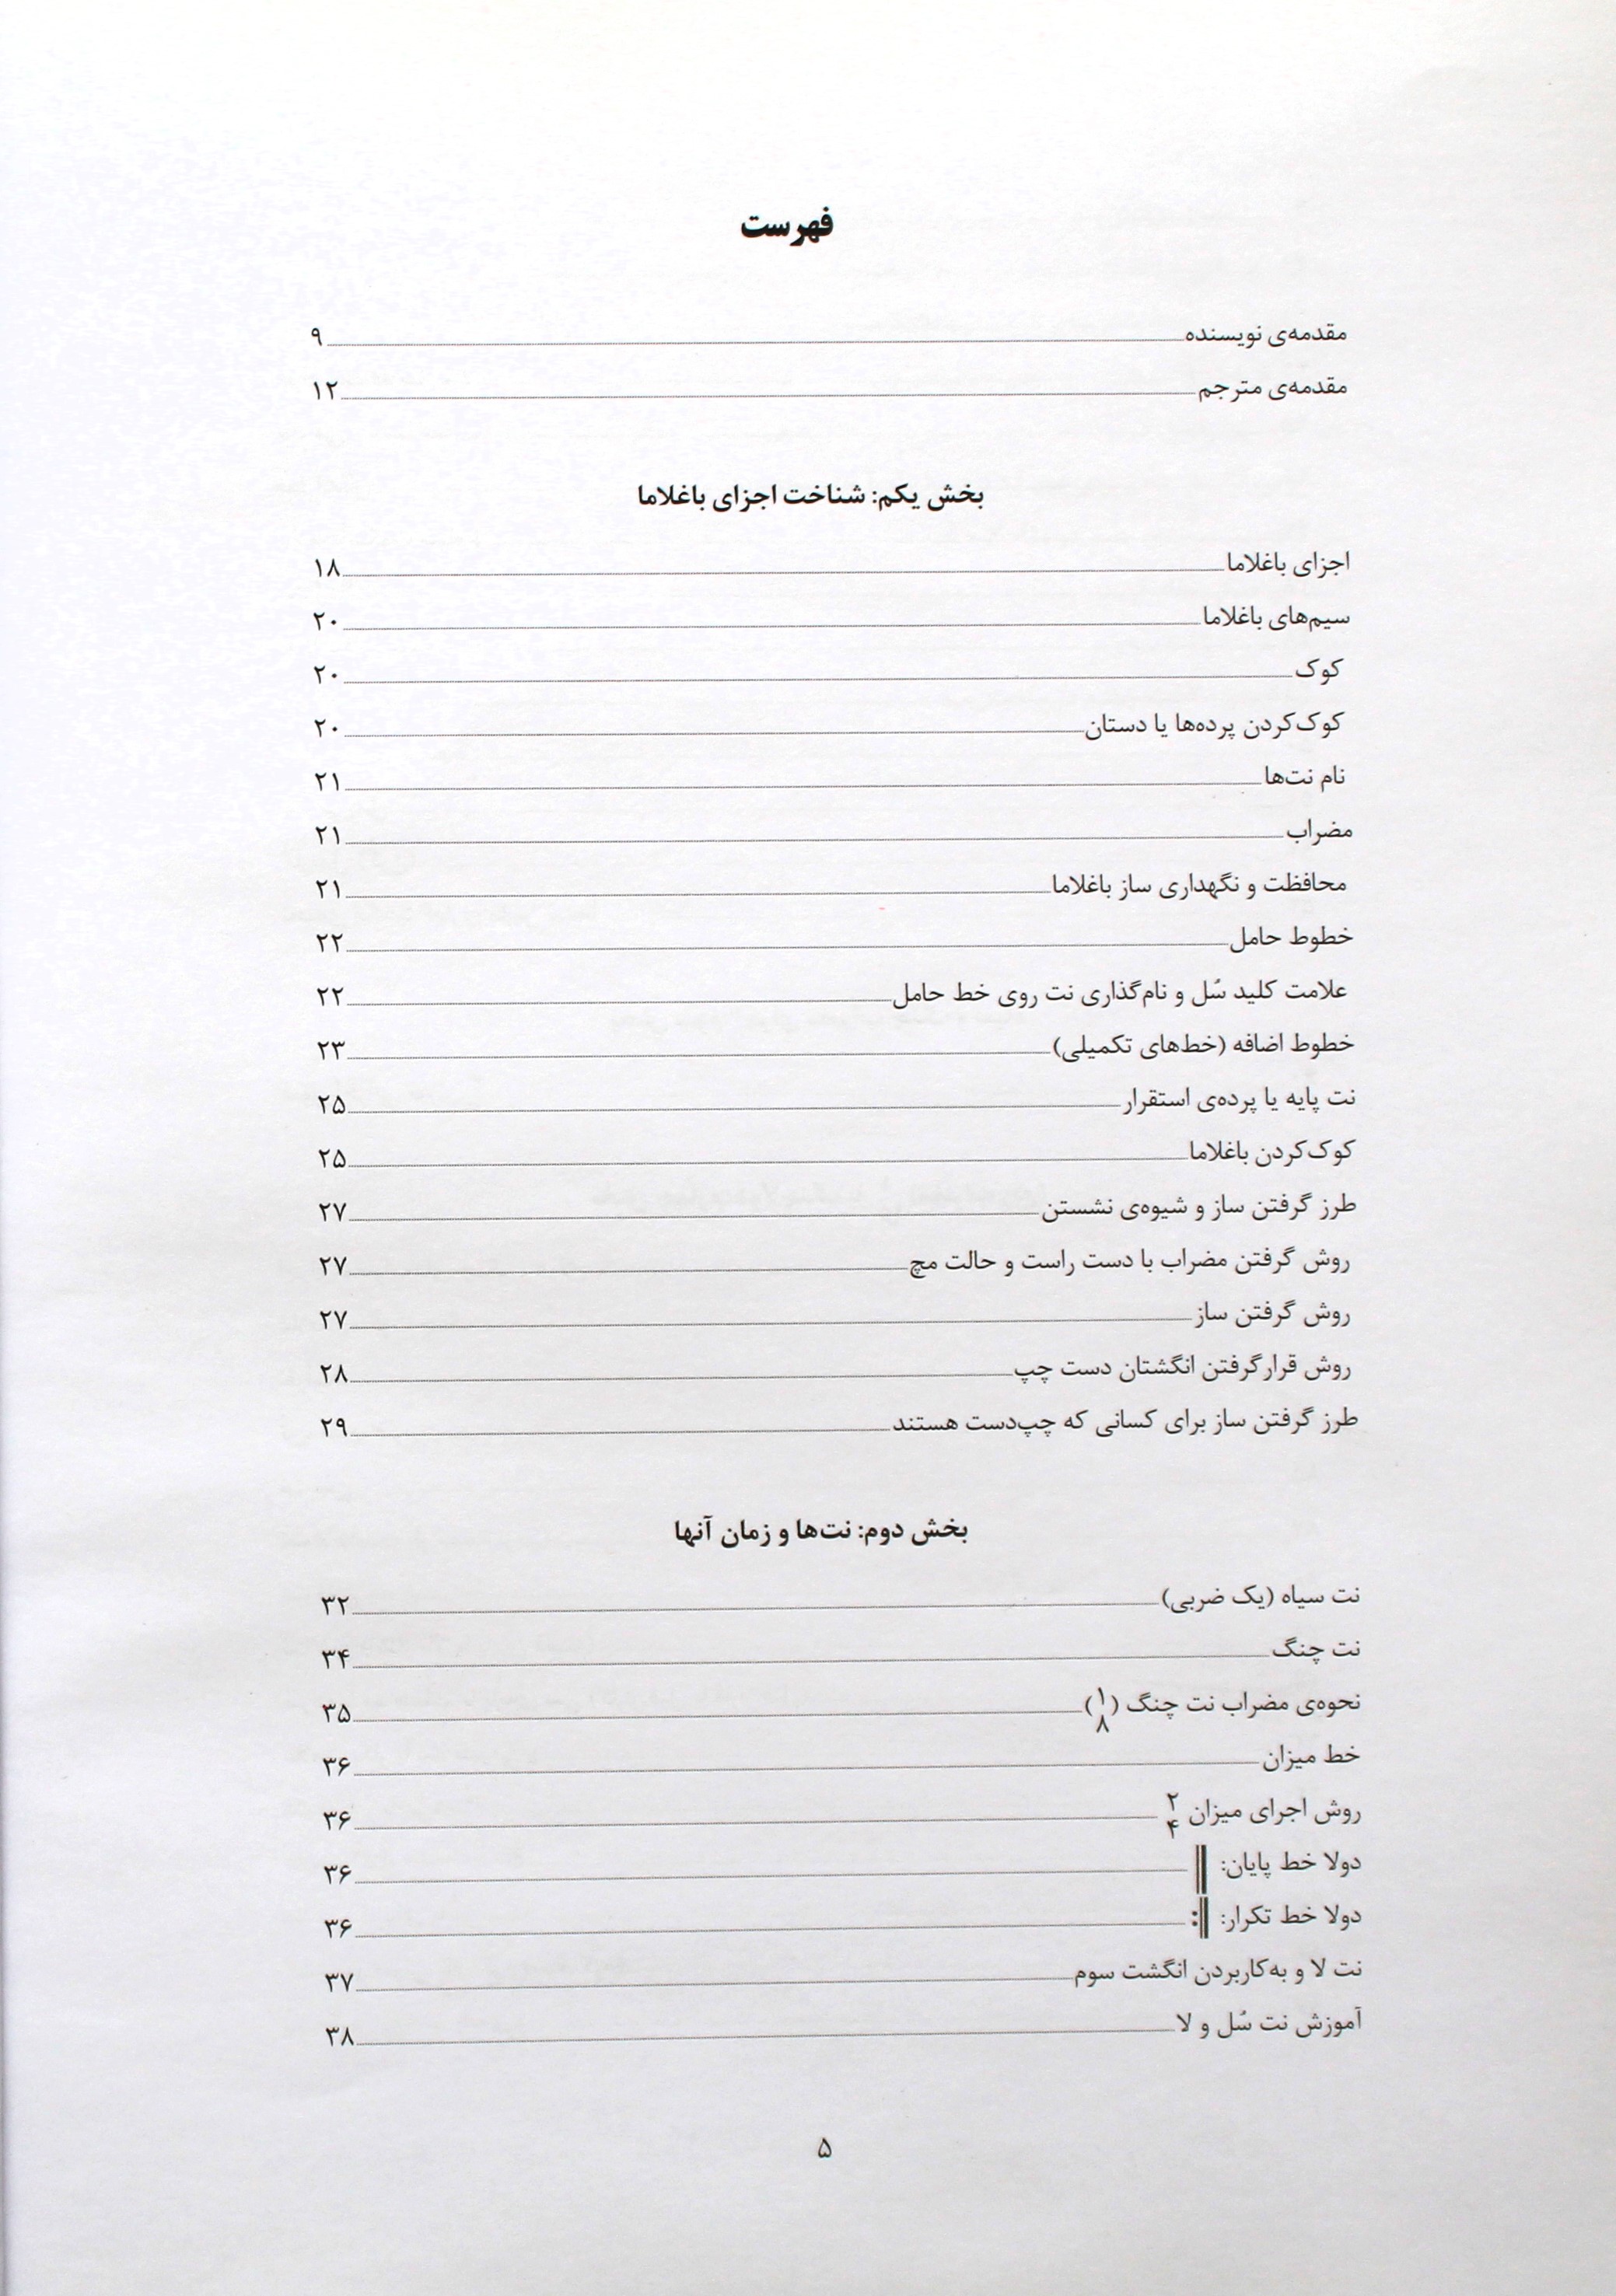 فهرست
مقدمه‌ی نویسنده ۹
مقدمه‌ی مترجم ۱۲
بخش یکم: شناخت اجزای باغلاما
اجزای باغلاما ۱۸
سیم‌های باغلاما ۲۰
کوک ۲۰
کوک‌کردن پرده‌ها یا دستان ۲۰
نام نت‌ها ۲۱
مضراب ۲۱
محافظت و نگهداری ساز باغلاما ۲۱
خطوط حامل ۲۲
علامت کلید سُل و نام‌گذاری نت روی خط حامل ۲۲
خطوط اضافه (خط‌های تکمیلی) ۲۳
نت پایه یا پرده‌ی استقرار ۲۵
کوک‌کردن باغلاما ۲۵
طرز گرفتن ساز و شیوه‌ی نشستن ۲۷
روش گرفتن مضراب با دست راست و حالت مچ ۲۷
روش گرفتن ساز ۲۷
روش قرارگرفتن انگشتان دست چپ ۲۸
طرز گرفتن ساز برای کسانی که چپ‌دست هستند ۲۹
بخش دوم: نت‌ها و زمان آنها
نت سیاه (یک ضربی) ۳۲
نت چنگ ۳۴
نحوه‌ی مضراب نت چنگ (۱/۸) ۳۵
خط میزان ۳۶
روش اجرای میزان ۲/۴ ۳۶
دولا خط پایان: ۳۶
دولا خط تکرار: ۳۶
نت لا و به‌کاربردن انگشت سوم ۳۷
آموزش نت سُل و لا ۳۸
۵